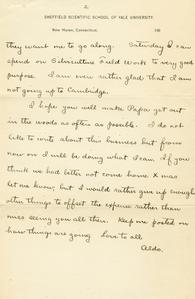 2.
SHEFFIELD SCIENTIFIC SCHOOL OF YALE UNIVERSITY
New Haven, Connecticut. 190
they want me to go along. Saturday I can
spend on Silviculture Field Work to very good
purpose. I am even rather glad that I am
not going up to Cambridge.
I hope you will make Papa get out
in the woods as often as possible. I do not
like to write about this business but from
now on I will be doing what I can. If you
think we had better not come home X mas
let me know, but I would rather give up enough
other things to offset the expense rather than
miss seeing you all then. Keep me posted on
how things are going Love to all
Aldo.